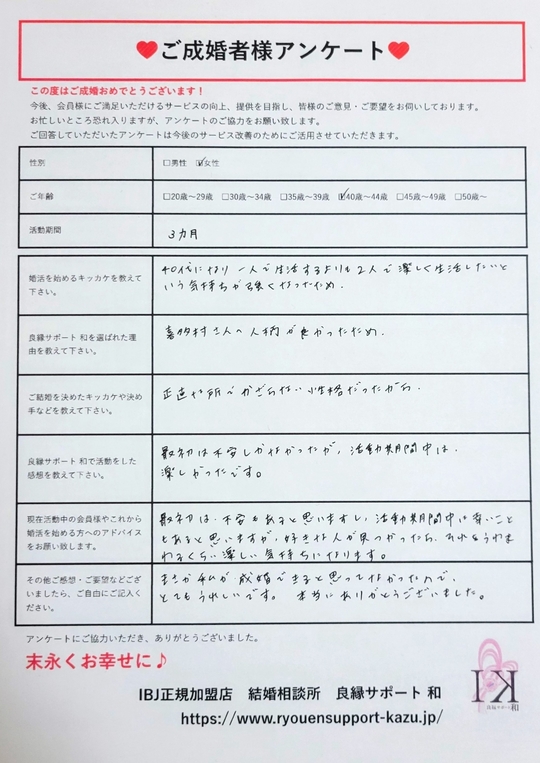 ♥ご成婚者様アンケート♥
この度はご成婚おめでとうございます！
今後、会員様にご満足いただけるサービスの向上、提供を目指し、皆様のご意見・ご要望をお伺いしております。
お忙しいところ恐れ入りますが、アンケートのご協力をお願い致します。
ご回答していただいたアンケートは今後のサービス改善のためにご活用させていただきます。
性別
□男性 ☑女性
ご年齢
□20歳～29歳 □30歳～34歳 □35歳～39歳 ☑40歳～44歳 □45歳～49歳 □50歳～
活動期間
3カ月
婚活を始めるキッカケを教えて
下さい。
40代になり一人で生活するよりも2人で楽しく生活したいと
いう気持ちが強くなったため.
良縁サポート 和を選ばれた理
由を教えて下さい。
喜多村さんの人柄が良かったため.
ご結婚を決めたキッカケや決め
手などを教えて下さい。
正直な所でかざらない性格だったから.
良縁サポート 和で活動をした
感想を教えて下さい。
最初は不安しかなかったが,活動期間中は.
楽しかったです。
現在活動中の会員様やこれから
婚活を始める方へのアドバイス
をお願い致します。
最初は.不安もあると思いますし,活動期間中は辛いこと
もあると思いますが,好きな人が見つかったら,それをうわま
わるくらい楽しい気持ちになります。
その他ご感想・ご要望などござ
いましたら、ご自由にご記入く
ださい。
まさか私が成婚できると思ってなかったので,
とてもうれしいです。 本当にありがとうございました。
アンケートにご協力いただき、ありがとうございました。
末永くお幸せに♪
IBJ正規加盟店 結婚相談所 良縁サポート 和
https://www.ryouensupport-kazu.jp/
IK
良縁サポート 和